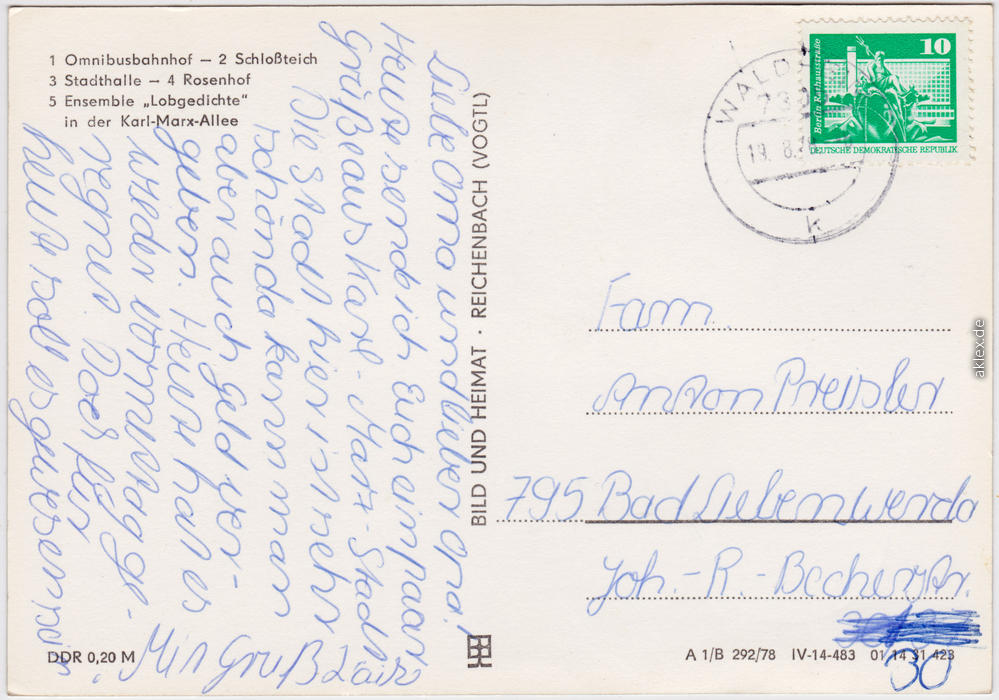 1 Omnibusbahnhof – 2 Schloßteich
3 Stadthalle – 4 Rosenhof
5 Ensemble „Lobgedichte“
in der Karl-Marx-Allee
Liebe Oma und lieber Opa!
Heute send ich Euch ein paar
Grüße aus Karl-Marx-Stadt
Die Stadt hier ist sehr
schön da kann man
aber auch Geld ver-
geben. Heute hat es
under Vormittag ge-
regnet Doch für
heute soll es gewesen
Mit Gruß
DDR 0,20 M
BILD UND HEIMAT · REICHENBACH (VOGTL)
WALD
19. 8.
k
10
Berlin Rathausstraße
DEUTSCHE DEMOKRATISCHE REPUBLIK
Fam.
Anton Preisler
795 Bad Liebenwerda
Joh.-R.-Becherstr.
30
A 1/B 292/78 IV-14-483 01 14 31 423
aklex.de